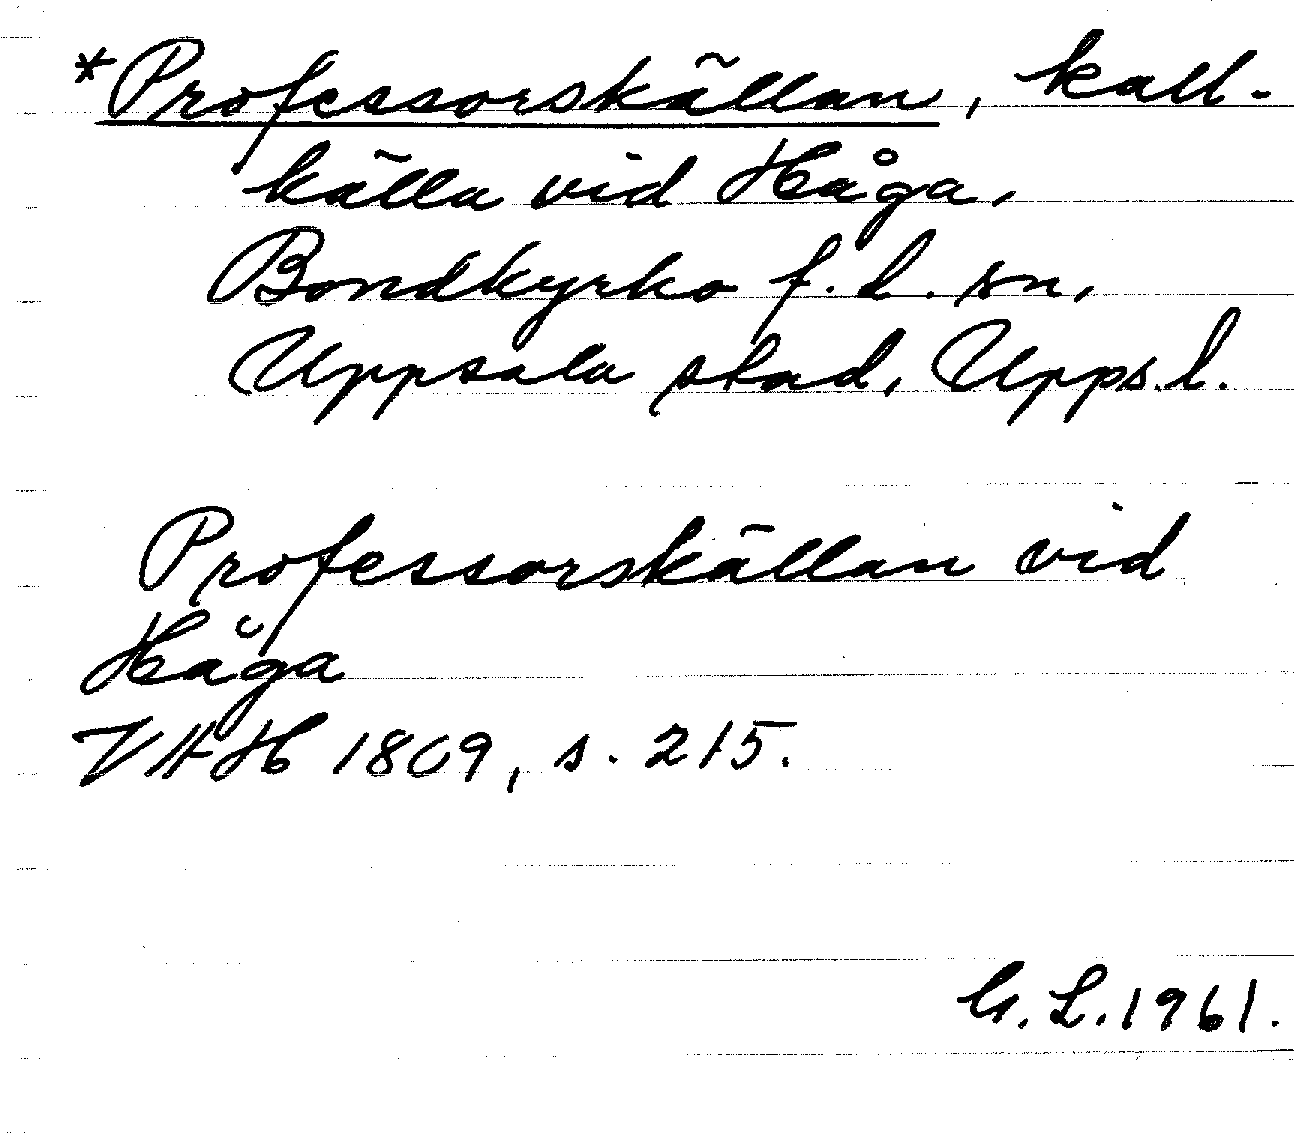 *Professorskällan, kall-
källa vid Håga,
Bondkyrko f.d. sn,
Uppsala stad, Upps.l.
Professorskällan vid
Håga
VHH 1809, s. 215.
G. L. 1961.